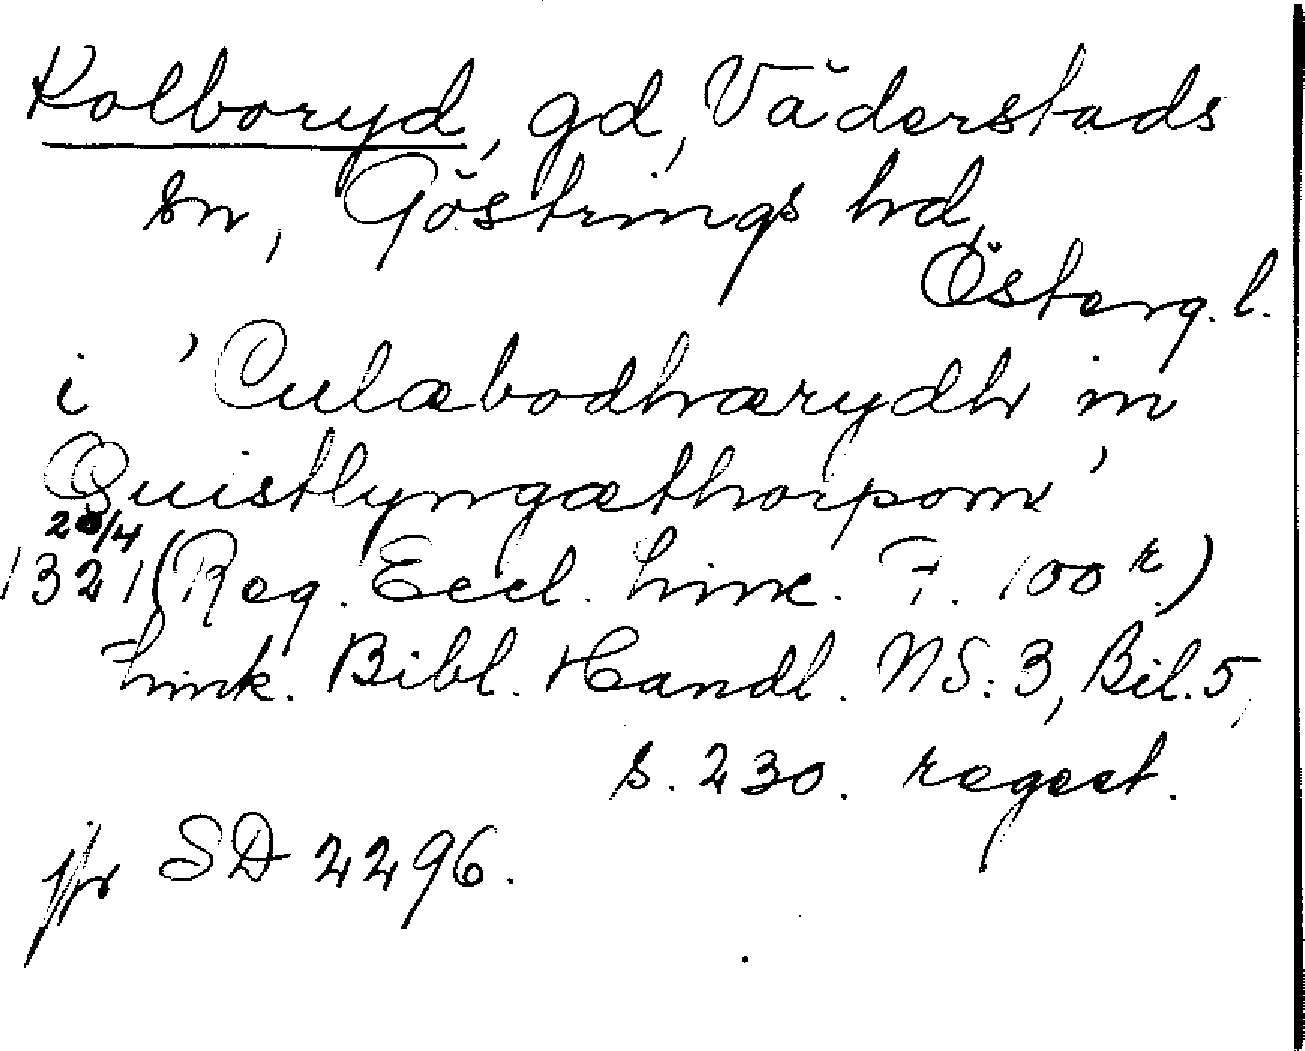 Kolboryd, gd, Väderstads
sn, Göstrings hd,
Österg. l.
i 'Culæbodhærydh in
Quistlyngæthorpom'
20/4
1321 (Reg. Eccl. Linc. F. 100 r.)
Link. Bibl. Handl. NS: 3, Bil. 5,
s. 230. regest.
jfr SD 2296.